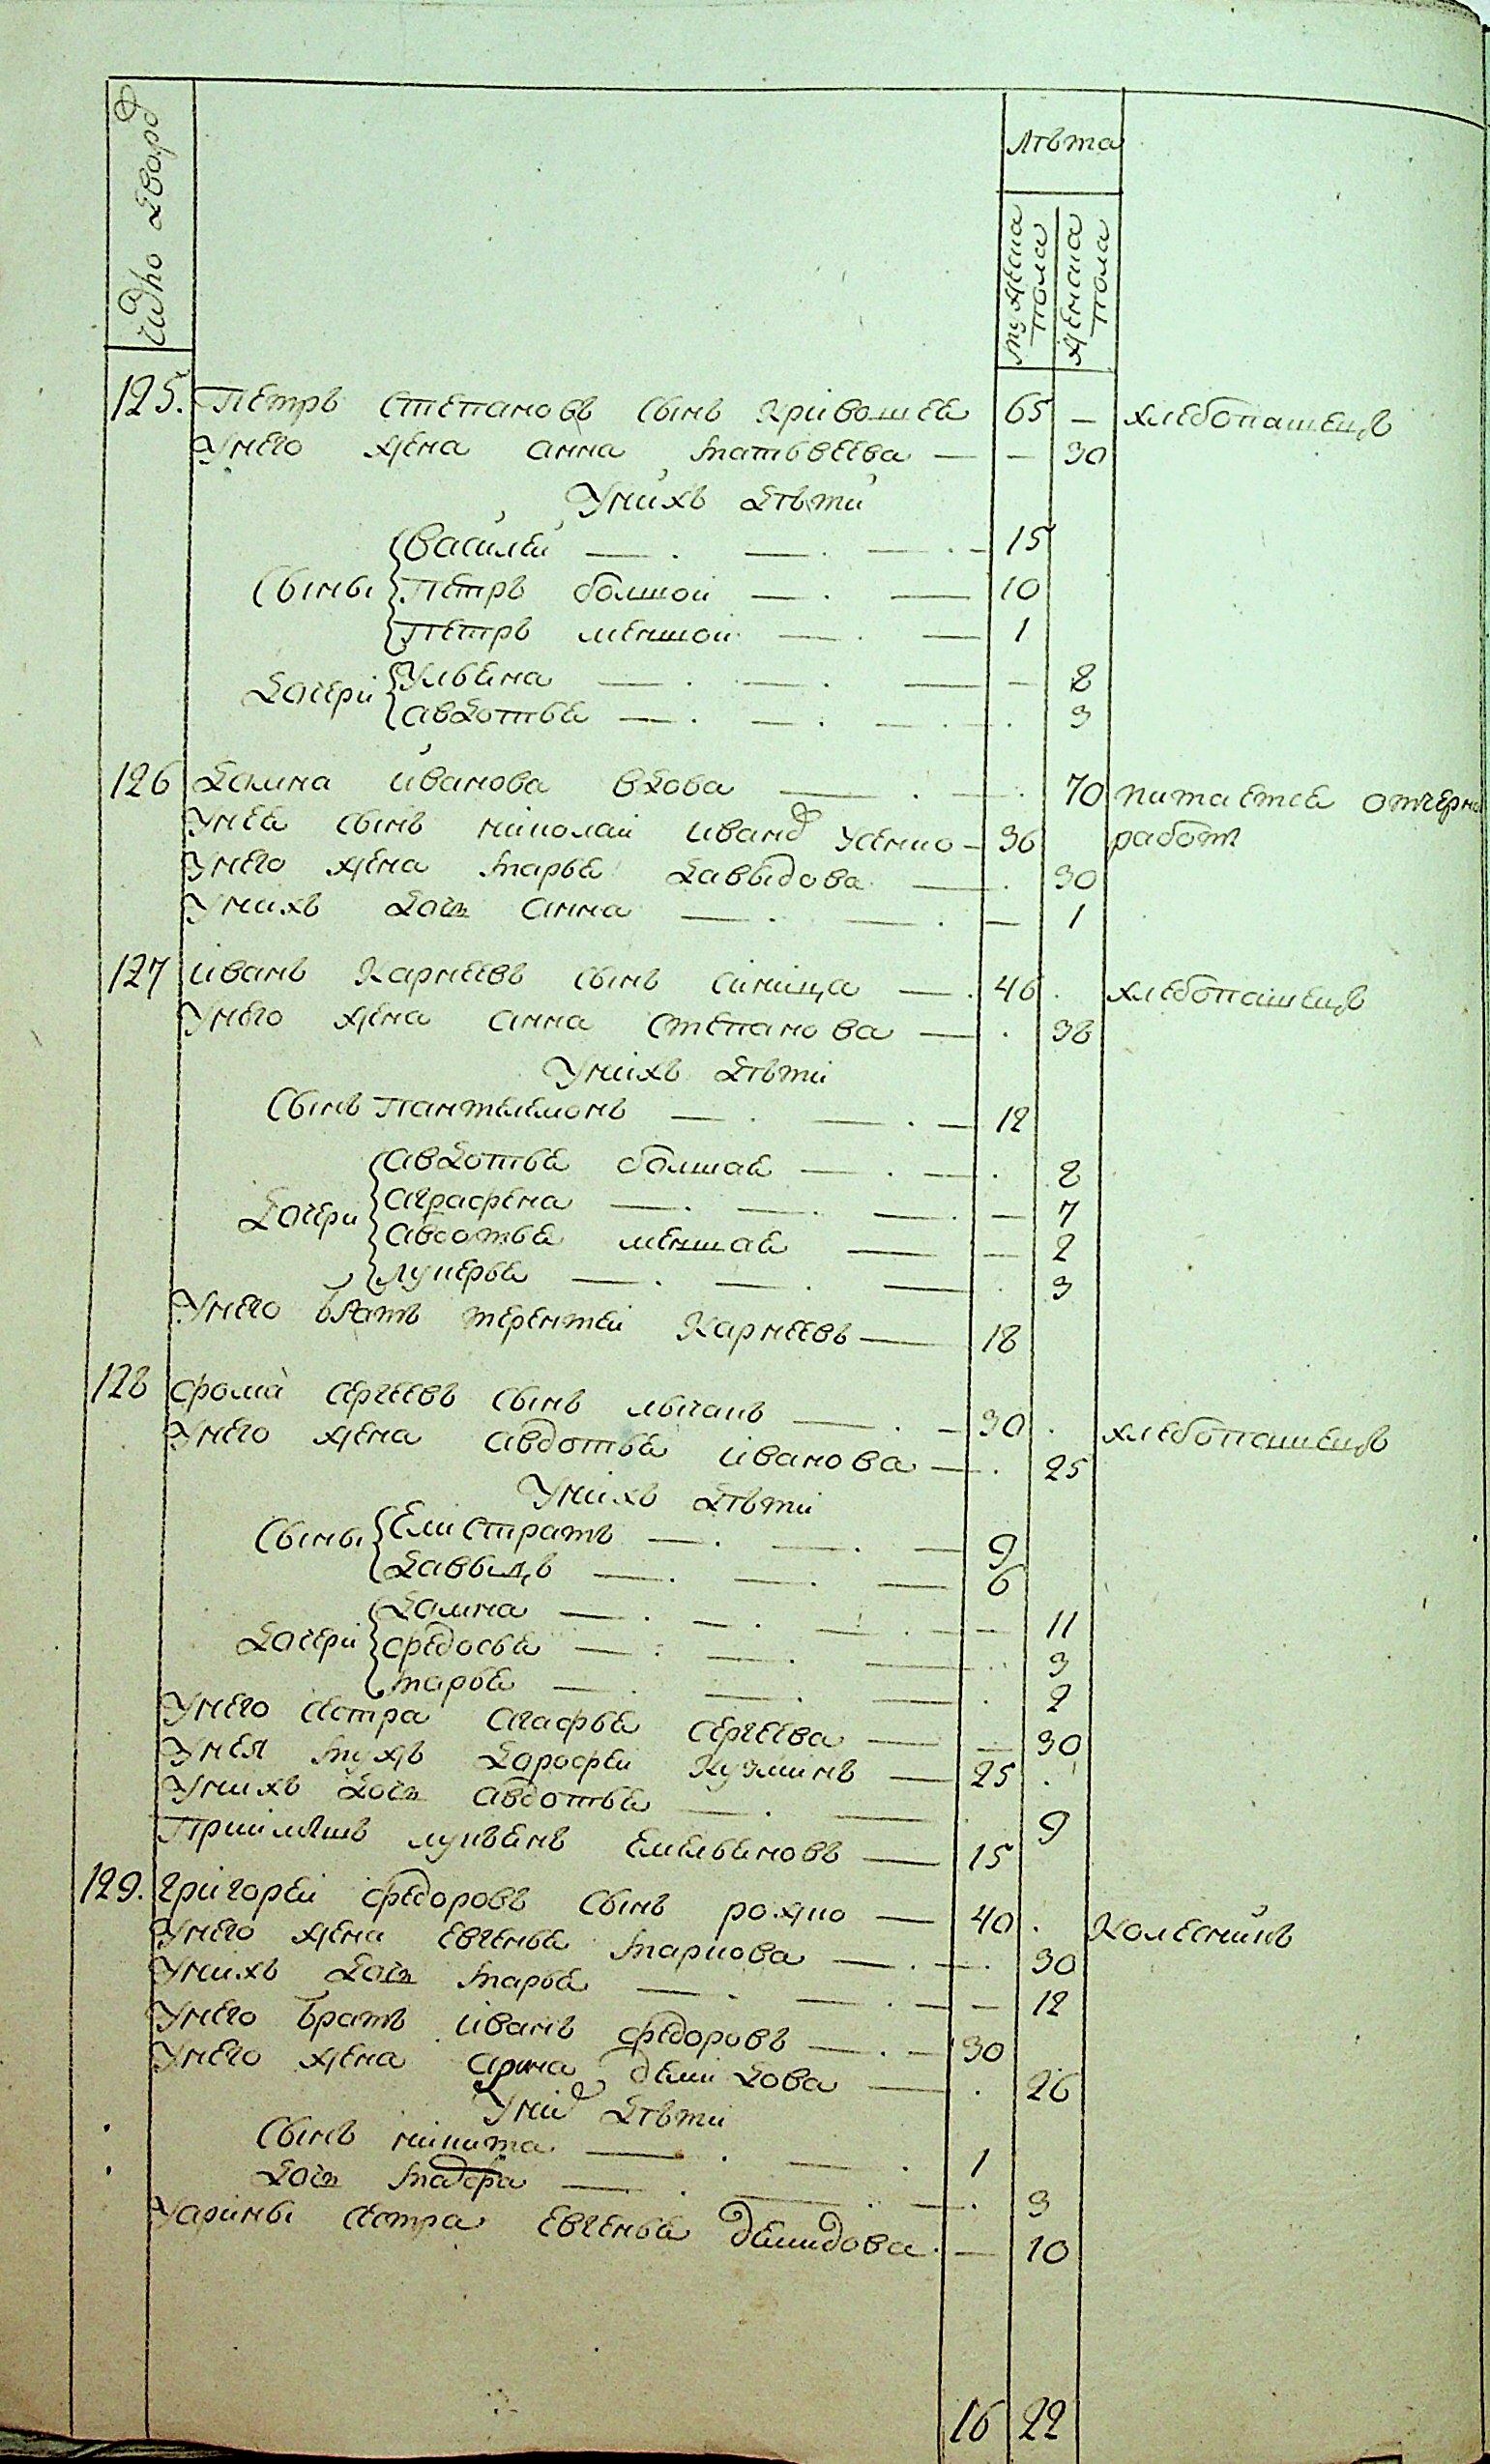 число дворо
Лѣта
мужеска пола
женска пола
125. Петръ Степановъ сынъ Кривошея 65 — хлебопашецъ
У него жена анна матьвеева — — 30
У нихъ дѣти
Сыны Василеи — 15
Петръ болшои — 10
Петръ меншои — 1
Дочери Ульяна — 8
авдотья — 3
126 Домна иванова вдова — 70 питается от черно
У нея сынъ николаи иванов усенко — 36 работы
У него жена марья давыдова — 30
У нихъ дочь анна — 1
127 иванъ Карнеевъ сынъ синица — 46 хлебопашецъ
У него жена анна степанова — 38
У нихъ дѣти
Сынъ Пантелемонъ — 12
Дочери авдотья болшая — 8
аграфена — 7
авдотья меншая — 2
лукерья — 3
У него братъ терентеи Карнеевъ — 18
128 фома сергеевъ сынъ лысакъ — 30 хлебопашецъ
У него жена авдотья иванова — 25
У нихъ дѣти
Сыны Елистратъ — 9
Давыдъ — 6
Дочери Домна — 11
федосья — 3
марья — 2
У него сестра агафья сергеева — 30
У нея мужъ дорофеи Кузминъ — 25
У нихъ дочь авдотья — 9
Приимышъ лукьянъ емельяновъ — 15
129. григореи федоровъ сынъ рожко — 40 Колесникъ
У него жена евгенья маркова — 30
У нихъ дочь марья — 12
У него братъ иванъ федоровъ — 30
У него жена арина демидова — 26
У них дѣти
Сынъ никита — 1
Дочь марфа — 3
У арины сестра евгенья демидова — 10
16 22